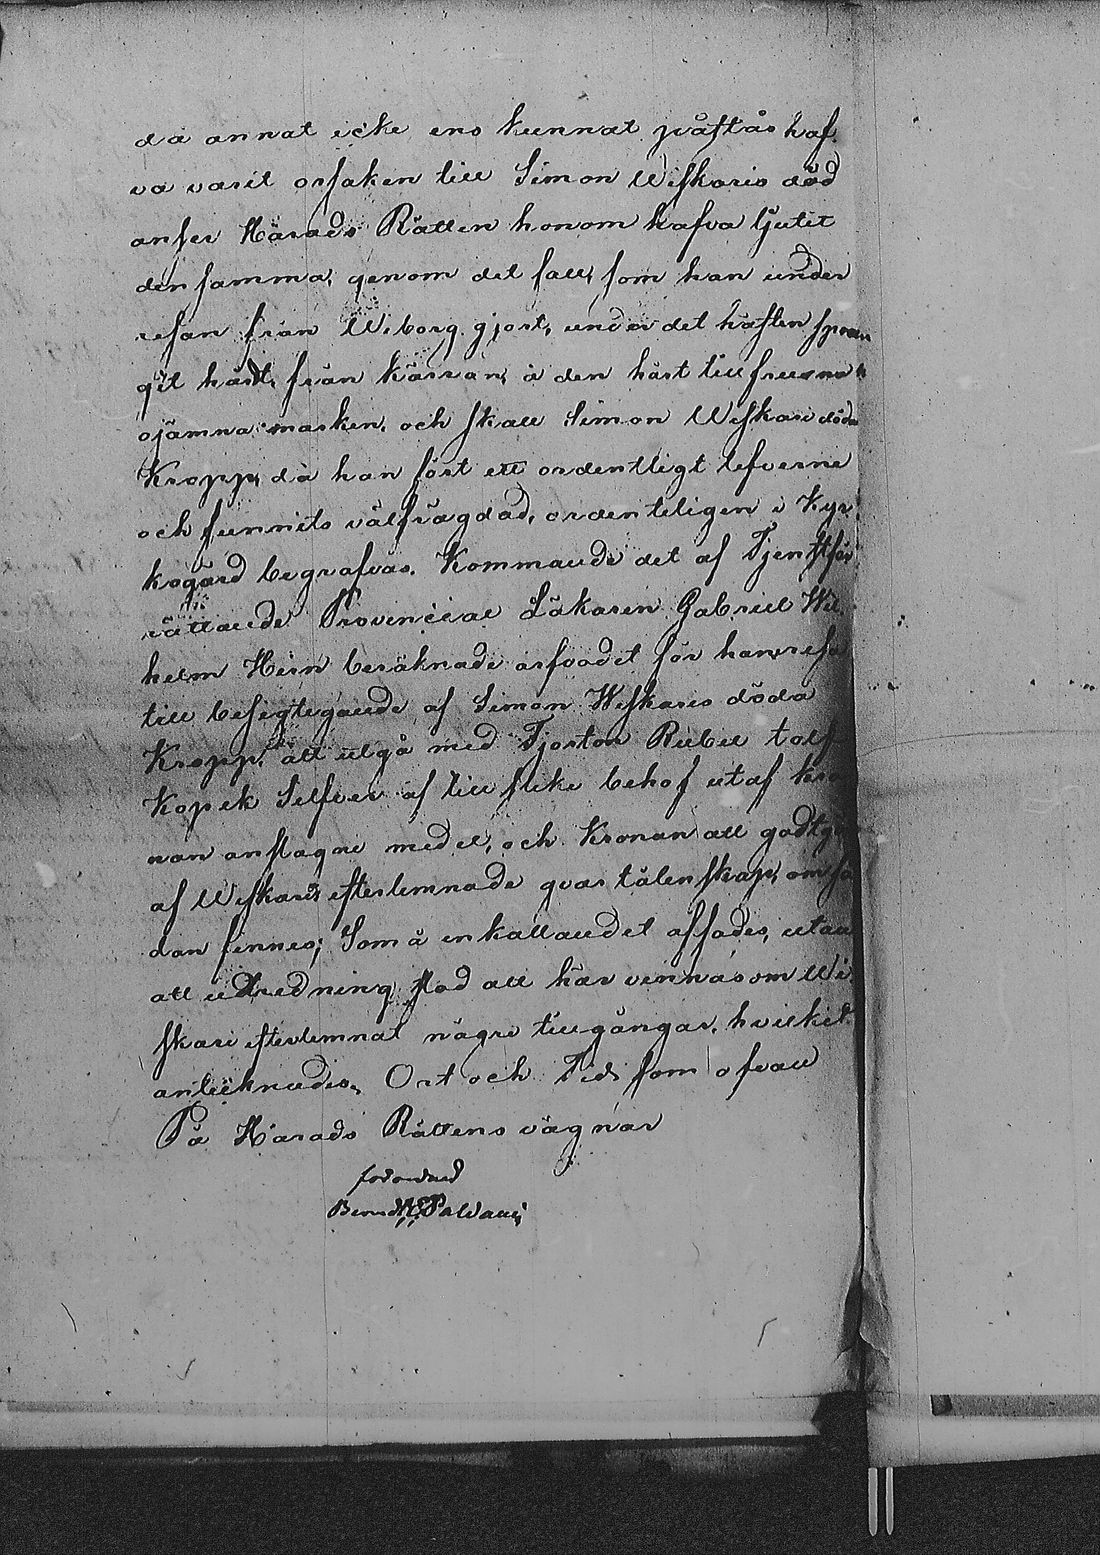 då annat icke ens kunnat påstås haf
va varit orsaken till Simon Wiskaris död
anser Härads Rätten honom hafva ljutit
densamma, genom det fall, som han under
resan från Wiborg gjort, under det hästen sprun
git hårdt, från kärran, å den hårt tillfrusna
ojämna marken, och skall Simon Wiskaris döda
Kropp, då han fört ett ordentligt lefverne
och funnits välfrägdad, ordenteligen i Kyr
kogård begrafvas. Kommande det af Tjenstför
rättande Provincial Läkaren Gabriel Wil
helm Hein beräknade arfvodet för hans resa
till besigtigande af Simon Wiskaris döda
Kropp, att utgå med Fjorton Rubel tolf
Kopek Silfver af till slike behof utaf kro
nan anslagne medel, och Kronan att godtgöra
af Wiskaris efterlemnade qvarlåtenskap, om så
dan finnes; Som å enkallandet affades, utan
att utredning stod att här vinnas om Wi
skari efterlemnat någre tillgångar, hvilket
antecknades. Ort och Tid som ofvan
På Härads Rättens vägnar
förordnad
Bernd